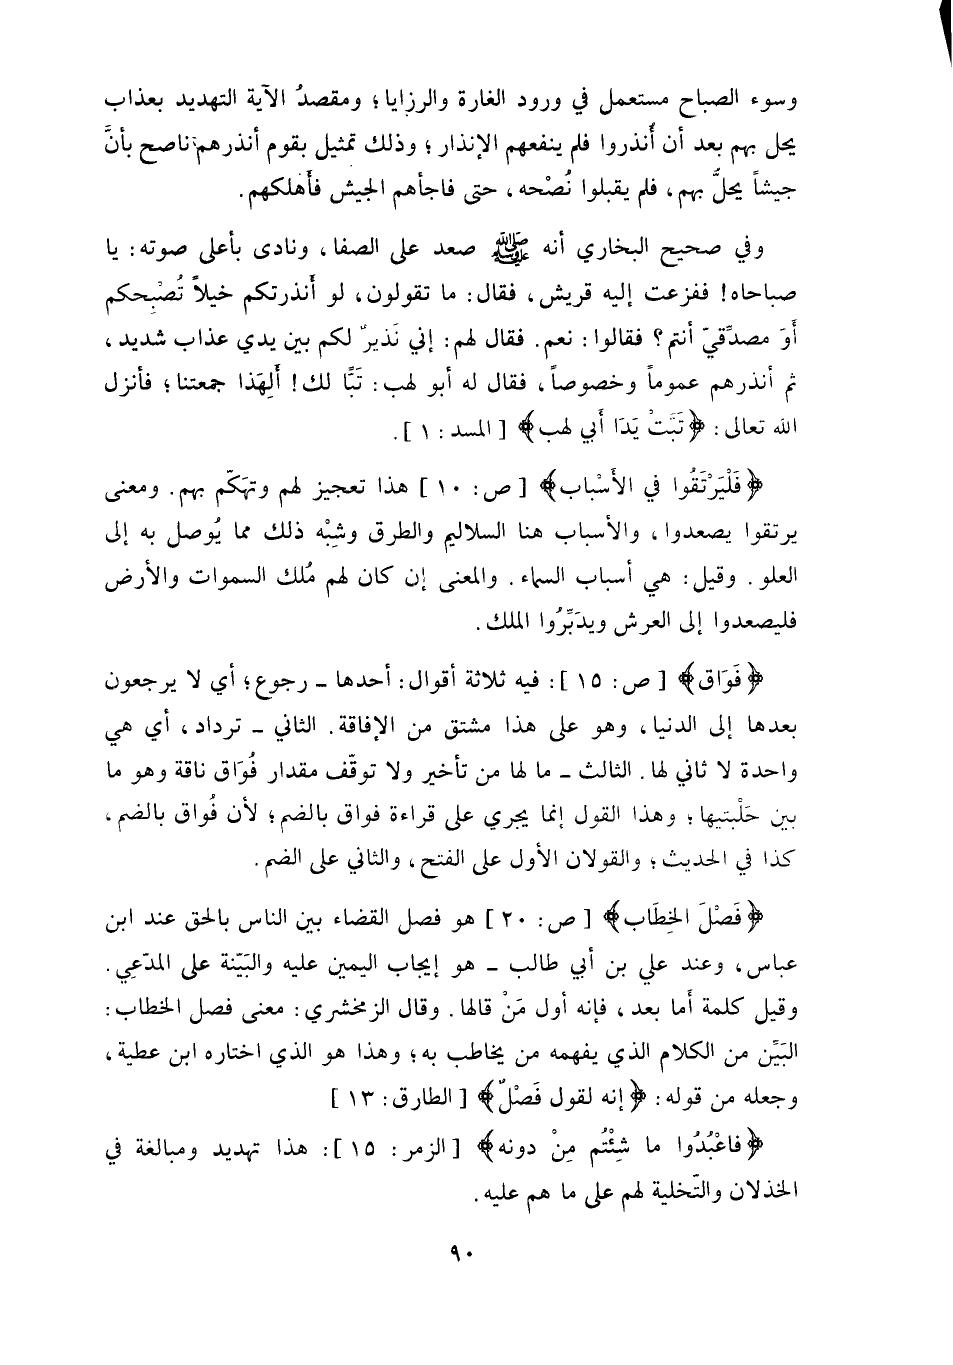 وسوء الصباح مستعمل في ورود الغارة والرزايا؛ ومقصدُ الآية التهديد بعذاب
يحل بهم بعد أن أُنذروا فلم ينفعهم الإنذار؛ وذلك تمثيل بقوم أنذرهم ناصح بأنَّ
جيشاً يحلُّ بهم، فلم يقبلوا نُصْحه، حتى فاجأهم الجيش فأَهلكهم.
وفي صحيح البخاري أنه ﷺ صعد على الصفا، ونادى بأعلى صوته: يا
صباحاه! ففزعت إليه قريش، فقال: ما تقولون، لو أَنذرتكم خيلاً تُصْبِحكم
أَوَ مصدِّقيّ أنتم؟ فقالوا: نعم. فقال لهم: إني نَذيرٌ لكم بين يدي عذاب شديد،
ثم أنذرهم عموماً وخصوصاً، فقال له أبو لهب: تَبًّا لك! أَلِهَذا جمعتنا؛ فأنزل
الله تعالى: ﴿تَبَّتْ يَدَا أَبي لهب﴾ [المسد: ١].
﴿فَلْيَرْتَقُوا في الأَسْباب﴾ [ص: ١٠] هذا تعجيز لهم وتهَكّم بهم. ومعنى
يرتقوا يصعدوا، والأسباب هنا السلاليم والطرق وشِبْه ذلك مما يُوصل به إلى
العلو. وقيل: هي أسباب السماء. والمعنى إن كان لهم مُلك السموات والأرض
فليصعدوا إلى العرش ويدَبِّرُوا الملك.
﴿فَوَاق﴾ [ص: ١٥]: فيه ثلاثة أقوال: أحدها ـ رجوع؛ أي لا يرجعون
بعدها إلى الدنيا، وهو على هذا مشتق من الإفاقة. الثاني ـ ترداد، أي هي
واحدة لا ثاني لها. الثالث ـ ما لها من تأخير ولا توقّف مقدار فُوَاق ناقة وهو ما
بين حَلْبتيها؛ وهذا القول إنما يجري على قراءة فواق بالضم؛ لأن فُواق بالضم،
كذا في الحديث؛ والقولان الأول على الفتح، والثاني على الضم.
﴿فَصْلَ الخِطَاب﴾ [ص: ٢٠] هو فصل القضاء بين الناس بالحق عند ابن
عباس، وعند علي بن أبي طالب ـ هو إيجاب اليمين عليه والبَيّنة على المدّعِي.
وقيل كلمة أَما بعد، فإنه أول مَنْ قالها. وقال الزمخشري: معنى فصل الخطاب:
البَيِّن من الكلام الذي يفهمه من يخاطب به؛ وهذا هو الذي اختاره ابن عطية،
وجعله من قوله: ﴿إنه لقول فَصْلٌ﴾ [الطارق: ١٣]
﴿فاعْبُدُوا ما شِئْتُم مِنْ دونه﴾ [الزمر: ١٥]: هذا تهديد ومبالغة في
الخذلان والتّخلية لهم على ما هم عليه.
٩٠